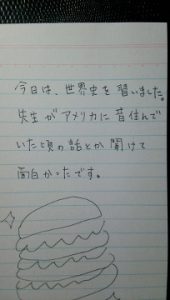 今日は、世界史を習いました。
先生がアメリカに昔住んで
いた頃の話とか聞けて
面白かったです。